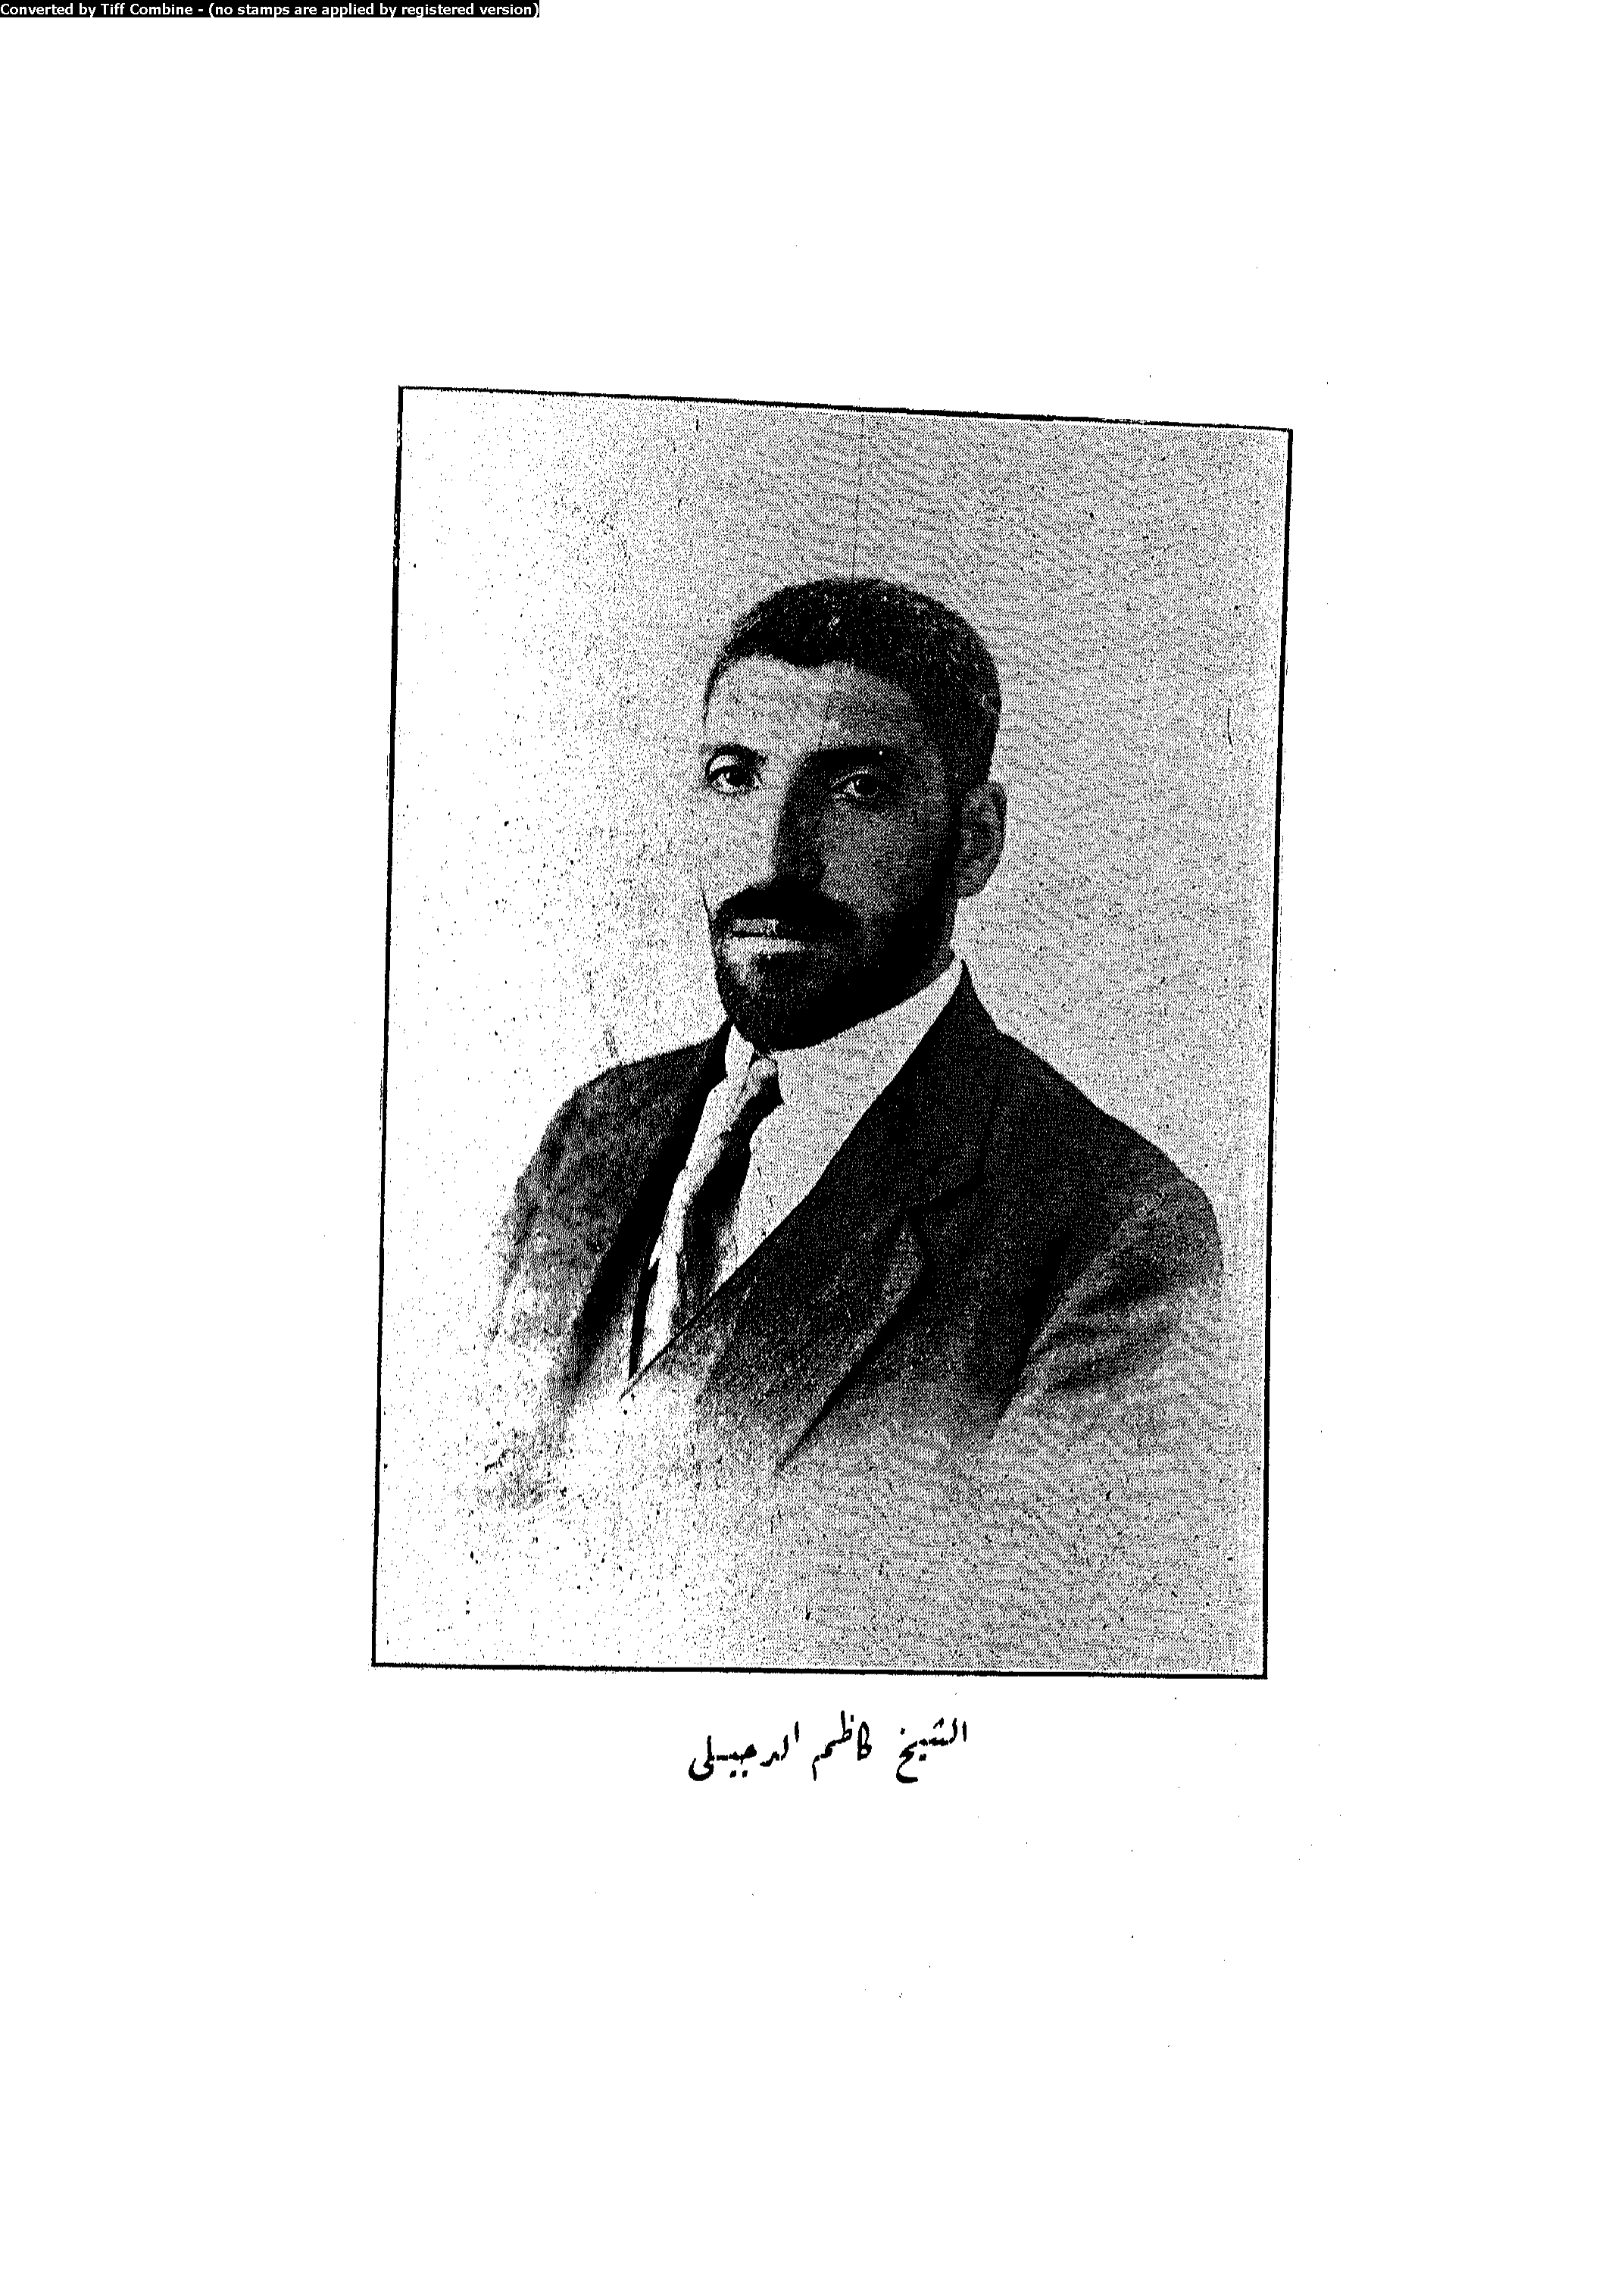 Converted by Tiff Combine - (no stamps are applied by registered version)
الشيخ كاظم الدجيلي